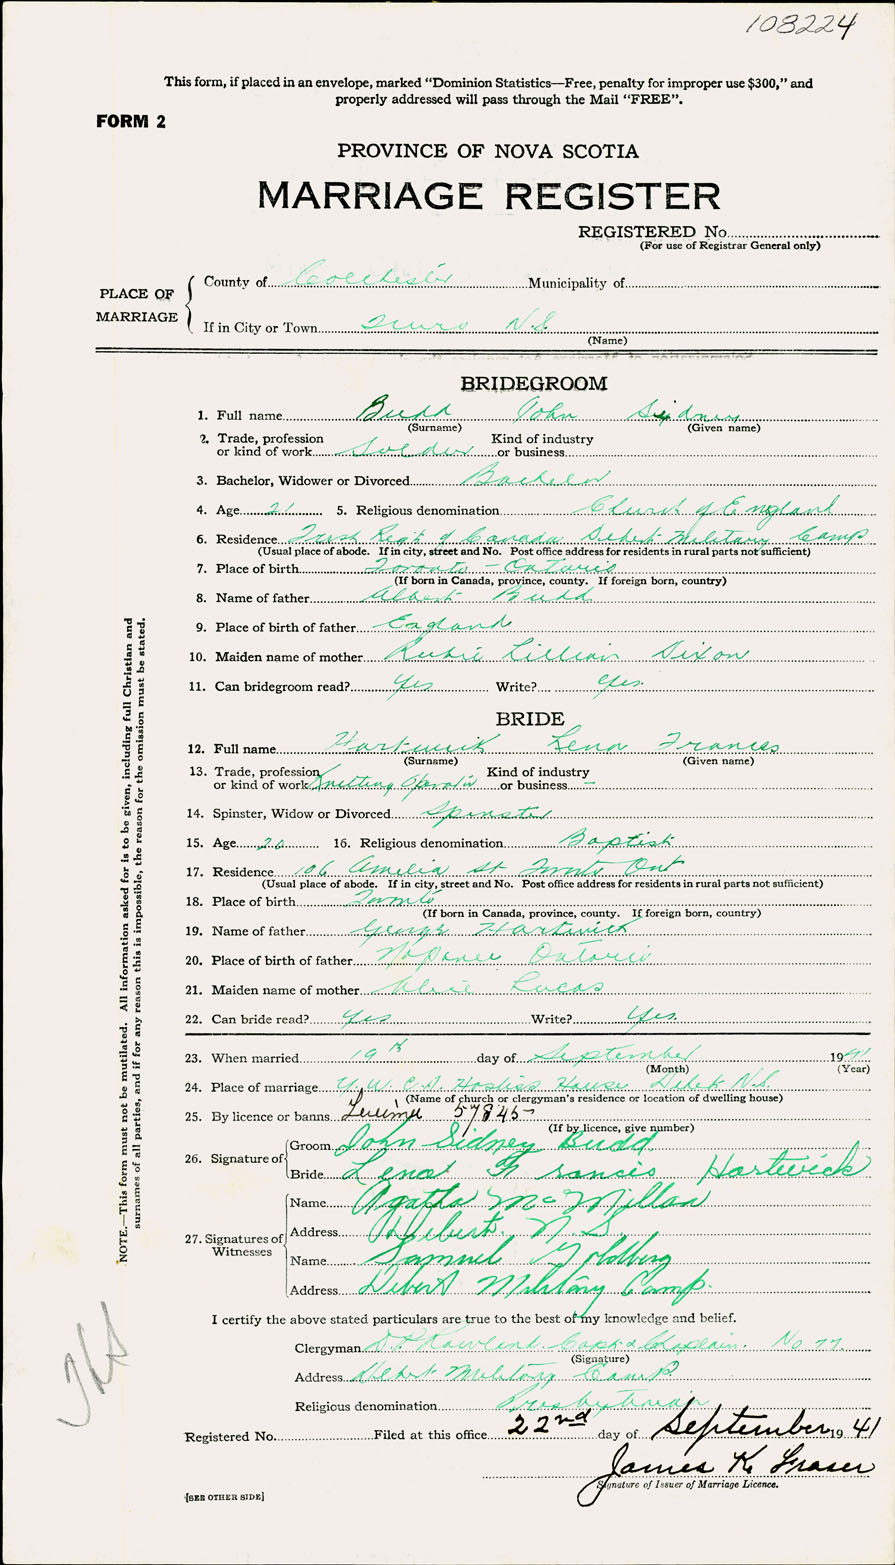 108224
This form, if placed in an envelope, marked "Dominion Statistics—Free, penalty for improper use $300," and
properly addressed will pass through the Mail "FREE".
FORM 2
PROVINCE OF NOVA SCOTIA
MARRIAGE REGISTER
REGISTERED No.
(For use of Registrar General only)
PLACE OF MARRIAGE
County of Colchester Municipality of
If in City or Town Truro N.S.
(Name)
BRIDEGROOM
1. Full name Budd John Sidney
(Surname) (Given name)
2. Trade, profession or kind of work Soldier Kind of industry or business
3. Bachelor, Widower or Divorced Bachelor
4. Age 21 5. Religious denomination Church of England
6. Residence Irish Regt of Canada Debert Military Camp
(Usual place of abode. If in city, street and No. Post office address for residents in rural parts not sufficient)
7. Place of birth Toronto - Ontario
(If born in Canada, province, county. If foreign born, country)
8. Name of father Albert Budd
9. Place of birth of father England
10. Maiden name of mother Rubie Lillian Dixon
11. Can bridegroom read? Yes Write? Yes.
BRIDE
12. Full name Hartwick Lena Frances
(Surname) (Given name)
13. Trade, profession or kind of work Knitting Operator Kind of industry or business -
14. Spinster, Widow or Divorced Spinster
15. Age 20 16. Religious denomination Baptist
17. Residence 106 Amelia St Toronto Ont
(Usual place of abode. If in city, street and No. Post office address for residents in rural parts not sufficient)
18. Place of birth Toronto
(If born in Canada, province, county. If foreign born, country)
19. Name of father George Hartwick
20. Place of birth of father Napanee Ontario
21. Maiden name of mother Alice Lucas
22. Can bride read? Yes Write? Yes.
23. When married 19th day of September 1941
(Month) (Year)
24. Place of marriage Y.W.C.A. Hostess House Debert N.S.
(Name of church or clergyman's residence or location of dwelling house)
25. By licence or banns License 57845
(If by licence, give number)
26. Signature of
Groom John Sidney Budd.
Bride Lena Francis Hartwick
27. Signatures of Witnesses
Name Agatha McMillan
Address Debert. N S.
Name Samuel Goldberg
Address Debert Military Camp.
I certify the above stated particulars are true to the best of my knowledge and belief.
Clergyman D.P. Rowland. Capt & Chaplain. No 77.
(Signature)
Address Debert Military Camp.
Religious denomination Presbyterian
Registered No. Filed at this office 22nd day of September 1941
James K. Fraser
Signature of Issuer of Marriage Licence.
[SEE OTHER SIDE]
NOTE.—This form must not be mutilated. All information asked for is to be given, including full Christian and
surnames of all parties, and if for any reason this is impossible, the reason for the omission must be stated.